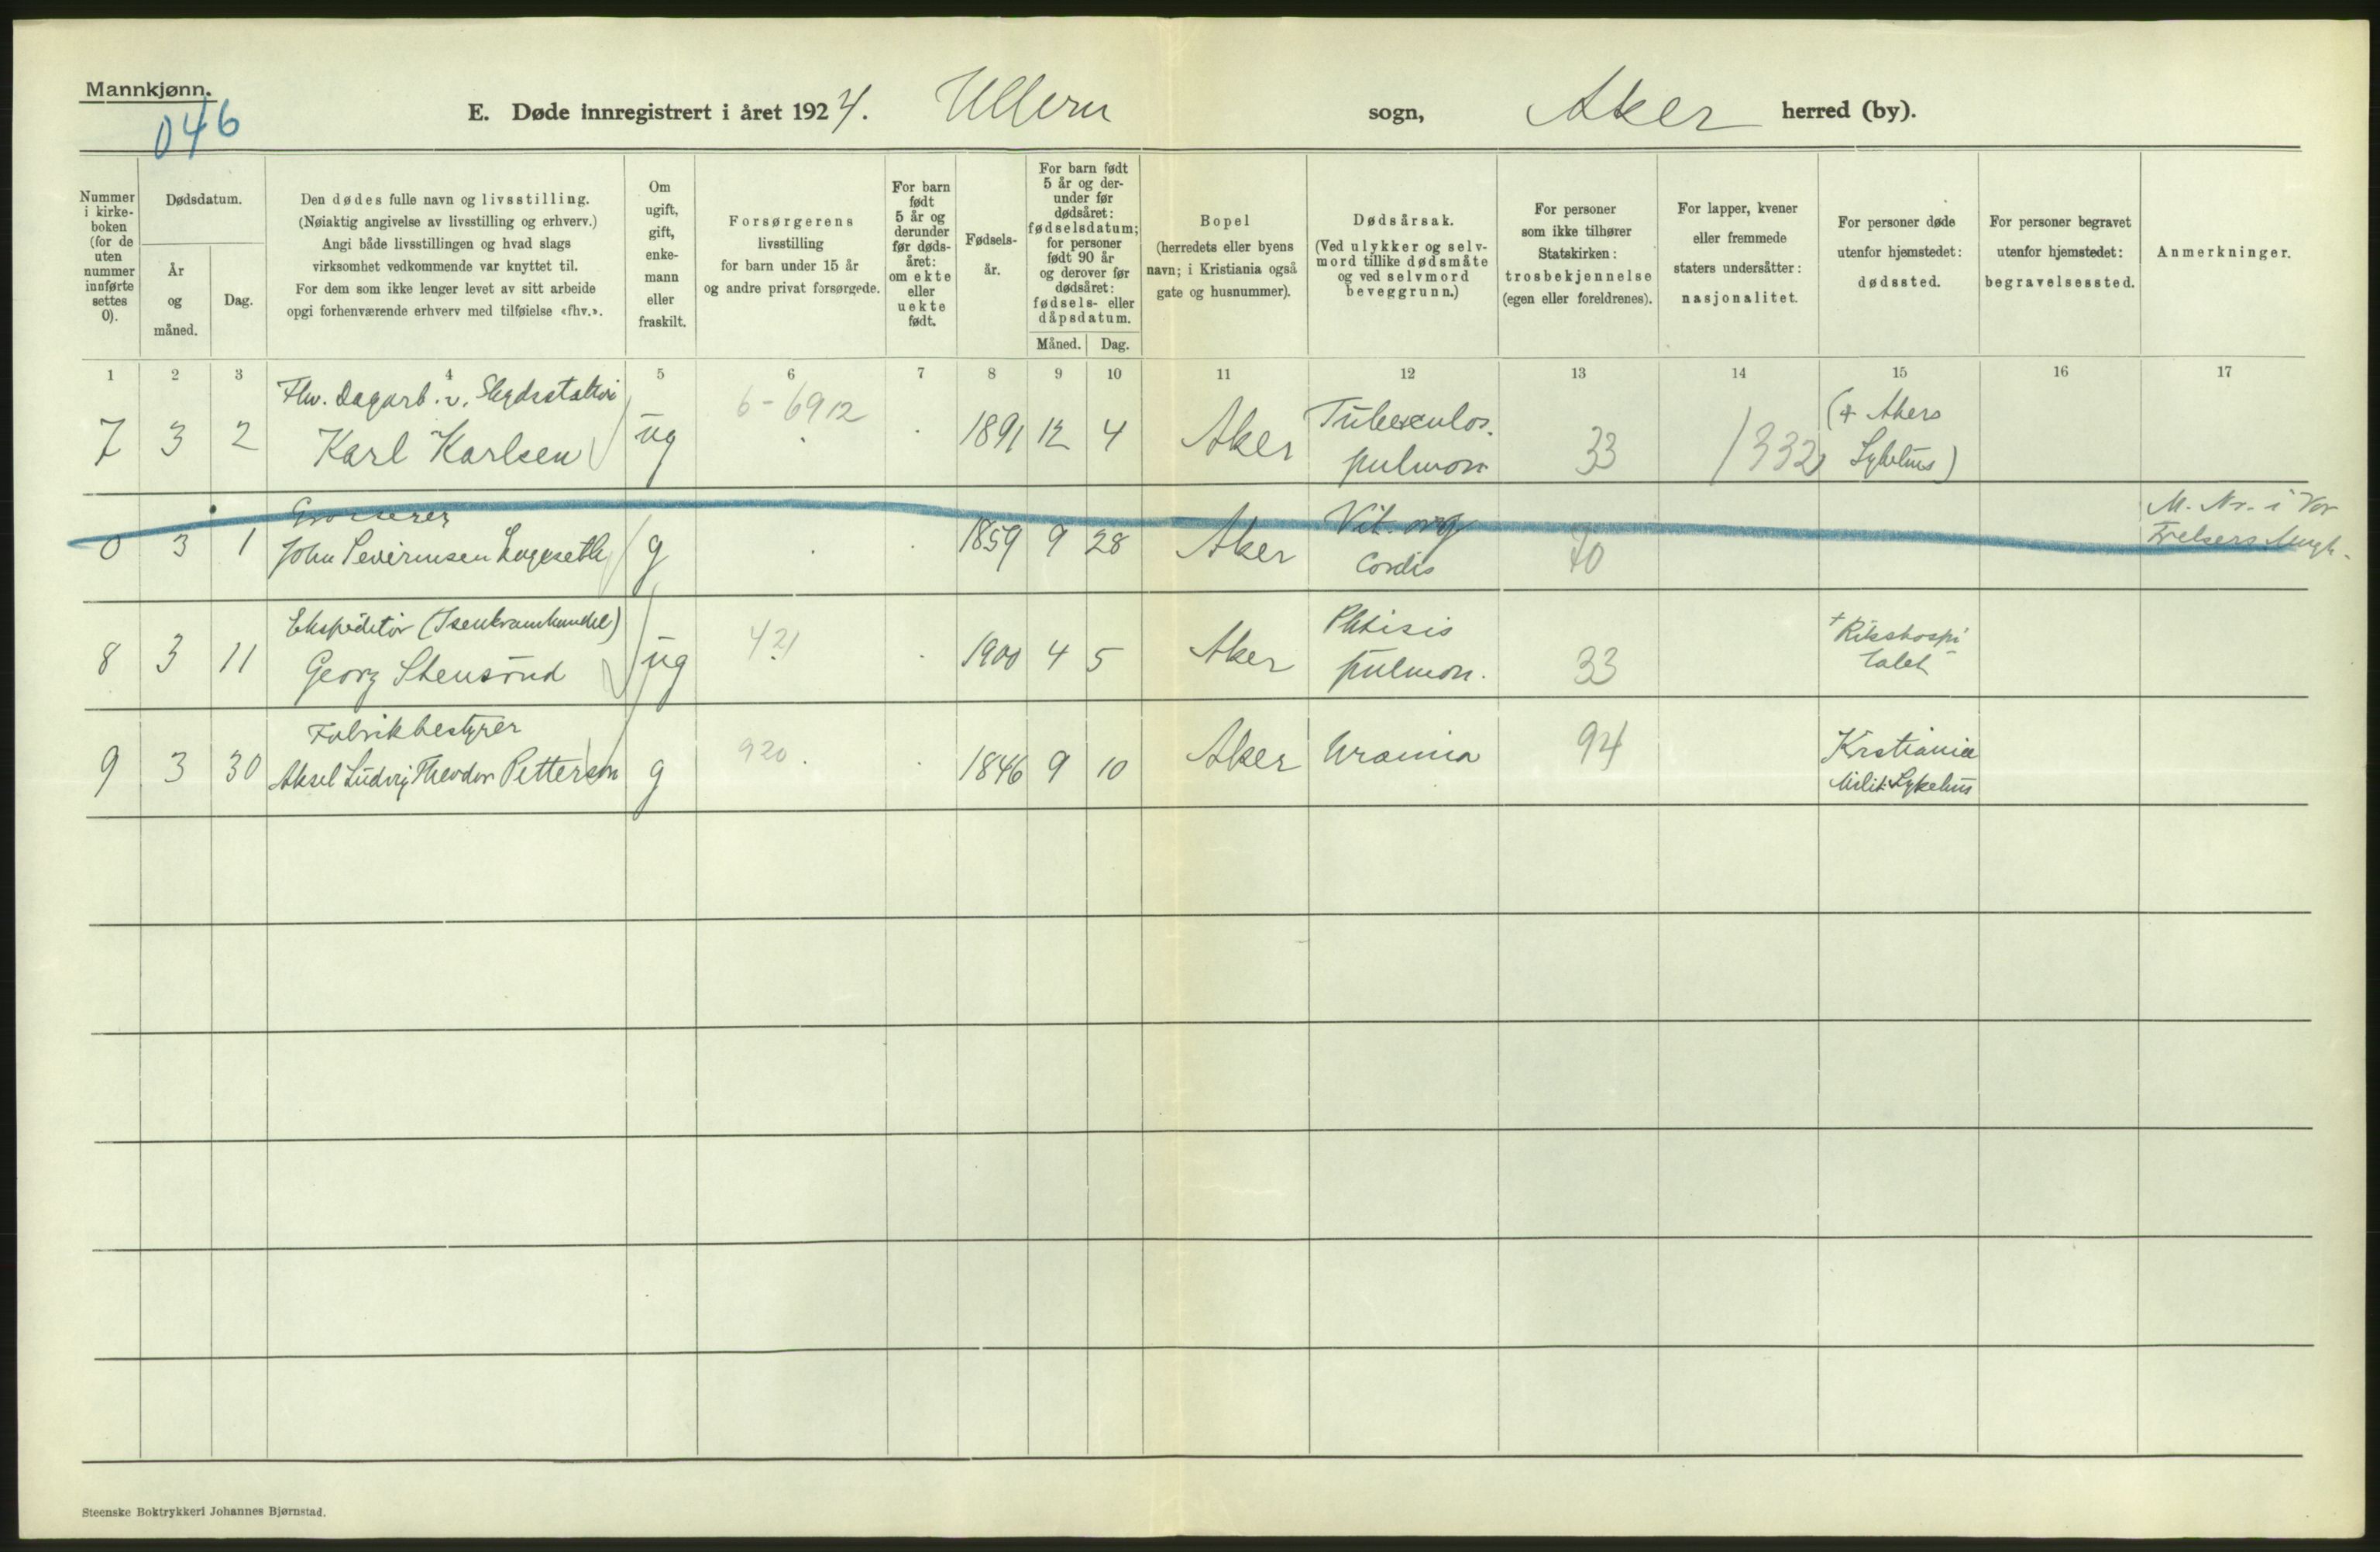 Mannkjønn.
046
E. Døde innregistrert i året 1924. Ullern sogn, Aker herred (by).
Nummer i kirke- boken (for de uten nummer innførte settes 0).
Dødsdatum.
År og måned.
Dag.
Den dødes fulle navn og livsstilling.
(Nøiaktig angivelse av livsstilling og erhverv.)
Angi både livsstillingen og hvad slags
virksomhet vedkommende var knyttet til.
For dem som ikke lenger levet av sitt arbeide
opgi forhenværende erhverv med tilføielse «fhv.».
Om ugift, gift, enke- mann eller fraskilt.
Forsørgerens
livsstilling
for barn under 15 år
og andre privat forsørgede.
For barn født 5 år og derunder før døds- året: om ekte eller uekte født.
Fødsels- år.
For barn født 5 år og der- under før dødsåret: fødselsdatum; for personer født 90 år og derover før dødsåret: fødsels- eller dåpsdatum.
Måned. Dag.
Bopel
(herredets eller byens
navn; i Kristiania også
gate og husnummer).
Dødsårsak.
(Ved ulykker og selv-
mord tillike dødsmåte
og ved selvmord
beveggrunn.)
For personer
som ikke tilhører
Statskirken:
trosbekjennelse
(egen eller foreldrenes).
For lapper, kvener
eller fremmede
staters undersåtter:
nasjonalitet.
For personer døde
utenfor hjemstedet:
dødssted.
For personer begravet
utenfor hjemstedet:
begravelsessted.
Anmerkninger.
1 2 3 4 5 6 7 8 9 10 11 12 13 14 15 16 17
Fhv. Dagarb. v.
7 3 2 Karl Karlsen ug 6-6912 1891 12 4 Aker Tuberculos. pulmon 33 1332 (+ Akers Sykehus)
Grosserer
0 3 1 John Severinsen g 1859 9 28 Aker Vit. org. Cordis 70 M. Nr. i Vor Frelsers
Ekspeditør (Isenkramhandel)
8 3 11 Georg Stensrud ug 421 1900 4 5 Aker Phtisis pulmon. 33 + Rikshospi talet
Fabrikbestyrer
9 3 30 Aksel Ludvig Theodor Petterson g 920 1846 9 10 Aker Uræmia 94 Krstiania Milit. Sykehus
Steenske Boktrykkeri Johannes Bjørnstad.